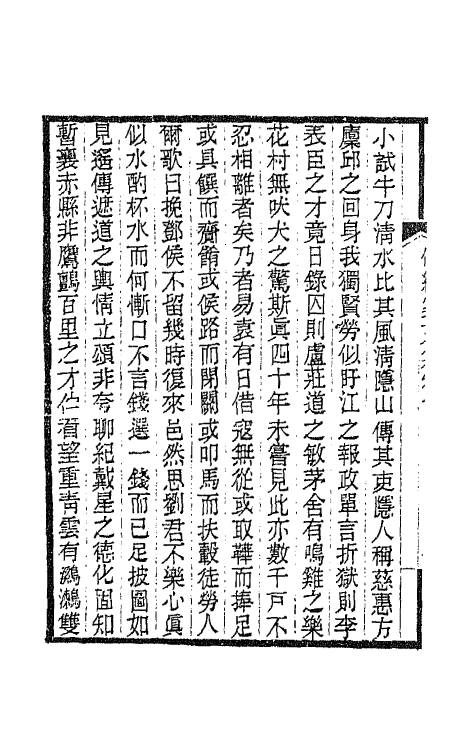 小試牛刀清水比其風清隱山傳其吏隱人稱慈惠方
廩邱之回身我獨賢勞似盱江之報政單言折獄則李
表臣之才竟日錄囚則盧莊道之敏茅舍有鳴雞之樂
花村無吠犬之驚斯眞四十年未嘗見此亦數千戸不
忍相離者矣乃者易袁有日借寇無從或取鞾而捧足
或具饌而齎餉或候路而閉關或叩馬而扶轂徒勞人
爾歌曰挽鄧侯不留幾時復來邑然思劉君不樂心眞
似水酌杯水而何慚口不言錢選一錢而已足披圖如
見遙傳遮道之輿情立頌非夸聊紀戴星之德化固知
暫襄赤縣非鷹鸇百里之才伫看望重靑雲有鸂鶒雙